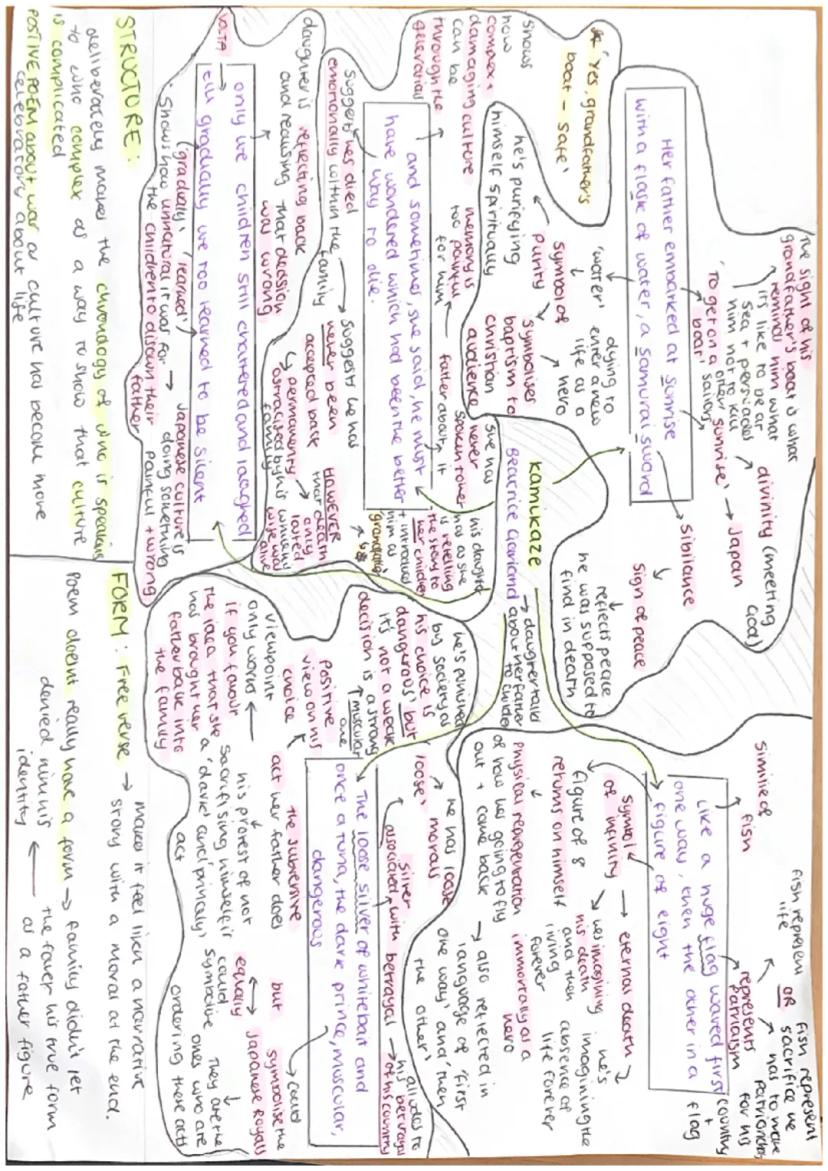 Kamikaze
Beatrice Garland
→ daughter told
about her father
to children
Her father embarked at sunrise
with a flask of water, a samurai sword
The sight of his
grandfather's boat is what
reminds him what
it's like to be at
sea + persuades
him not to kill
'To get on a
boat'
other
sailors
sunrise'
→ Japan
divinity (meeting
God)
→ sibilance
sign of peace
reflects peace
he was supposed to
find in death
'water'
dying to
enter a new
life as a
hero
symbol of
purity
symbolises
baptism to
christian
audience
he's purifying
himself spiritually
'Yes, grandfather's
boat – safe'
shows
how
complex +
damaging culture
can be
through the
generations
and sometimes, she said, he must
have wondered which had been the better
way to die.
memory is
too painful
for him
← father about it
she has
never
spoken to her
his daughter
has as she
is retelling
the story to
her children
+ introduces
him as
'grandfather'
suggests he died
emotionally within the
family
→ suggests he has
never been
accepted back
↳ permanently
ostracised by his
family
HOWEVER
that death
only
lasted
whilst his
wife was
alive
daughter is reflecting back
and realising that decision
was wrong
VOLTA
only we children still chattered and laughed
till gradually we too learned to be silent
'gradually' 'learned'
shows how unnatural it was for
the children to disown their
father
→ Japanese culture is
doing something
painful + wrong
STRUCTURE:
deliberately makes the chronology of who is speaking
to who complex as a way to show that culture
is complicated
POSTIVE POEM about war as culture has become more
celebratory about life
like a huge flag waved first
one way, then the other in a
figure of eight
simile of
fish
fish represent
life
OR
fish represent
sacrifice he
has to make
for his
country
flag
represents
patriotism
symbol
of infinity
→ eternal death
figure of 8
returns on himself
Physical representation
of how was going to fly
out + came back
→ also reflected in
language of 'first
one way' and 'then
the other'
he's imagining
his death
and then
living
forever
immortally as a
hero
he's
imagining the
absence of
life forever
The loose silver of whitebait and
once a tuna, the dark prince, muscular,
dangerous
'loose'
he has loose
morals
silver
associated with betrayal
→ alludes to
his betrayal
of his country
he's punished
by society as
his choice is
dangerous but
it's not a weak
decision is a strong
muscular
one
positive
view on his
choice
the subversive
act her father does
his protest of not
sacrifising himself is
a 'dark' and 'princely'
act
but
equally
could
symbolise
→ could
symbolise the
Japanese Royals
They are the
ones who are
ordering these acts
viewpoint
only works
if you favour
the idea that she
has brought her
father back into
the family
FORM: Free verse → makes it feel like a narrative
story with a moral at the end.
Poem doesnt really have a form → family didn't let
the father his true form
as a father figure
denied him his
identity